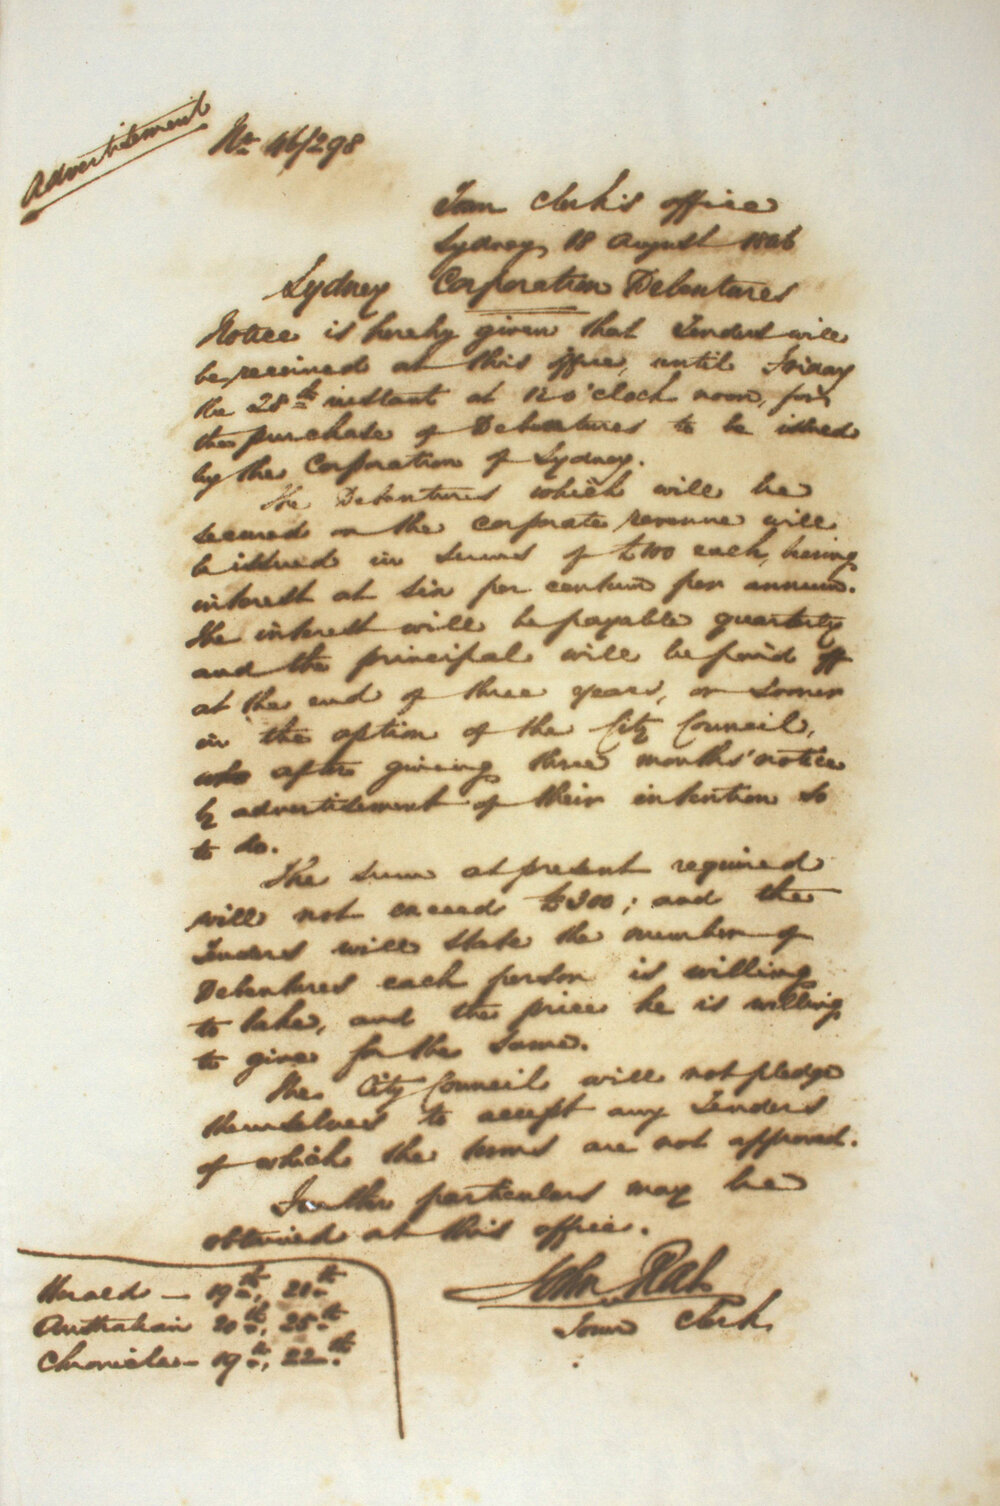 Advertisement
No. 46/298
Town Clerk's Office
Sydney, 18 August 1846
Sydney Corporation Debentures
Notice is hereby given that Tenders will
be received at this Office, until Friday
the 28th instant at 12 o'clock noon, for
the purchase of Debentures to be issued
by the Corporation of Sydney.
The Debentures which will be
secured on the corporate revenue will
be issued in sums of £100 each, bearing
interest at six per centum per annum.
The interest will be payable quarterly
and the principal will be paid off
at the end of three years, or sooner
in the option of the City Council,
after giving three months' notice
by advertisement of their intention so
to do.
The sum at present required
will not exceed; and the
Tenders will state the number of
Debentures each person is willing
to take, and the price he is willing
to give for the same.
The City Council will not pledge
themselves to accept any Tenders
of which the terms are not approved.
Further particulars may be
obtained at this office.
John Rae
Town Clerk
Herald — 19th, 21st
Australian 20th, 25th
Chronicle — 19th, 22nd